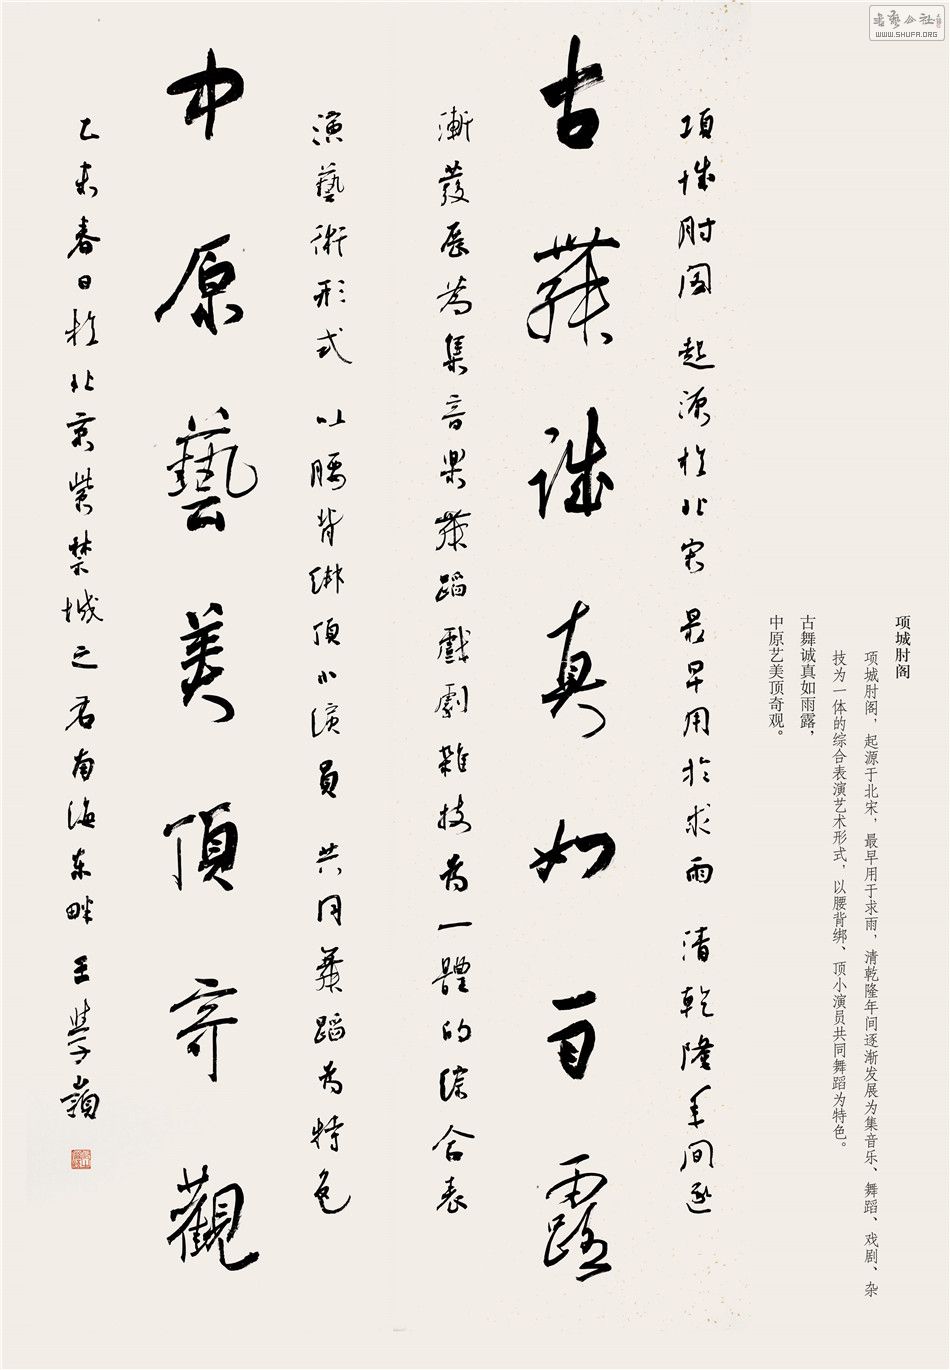 项城肘阁
项城肘阁，起源于北宋，最早用于求雨，清乾隆年间逐渐发展为集音乐、舞蹈、戏剧、杂
技为一体的综合表演艺术形式，以腰背绑、顶小演员共同舞蹈为特色。
古舞诚真如雨露，
中原艺美顶奇观。
項城肘阁 起源於北宋 最早用於求雨 清乾隆年间逐
古舞誠真如雨露
漸發展為集音樂舞蹈戲劇雜技為一體的综合表
演藝術形式 以腰背绑頂小演員 共同舞蹈為特色
中原藝美頂奇觀
乙未春日於北京紫禁城之右南海东畔 王學嶺
书艺公社
www.SHUFA.ORG